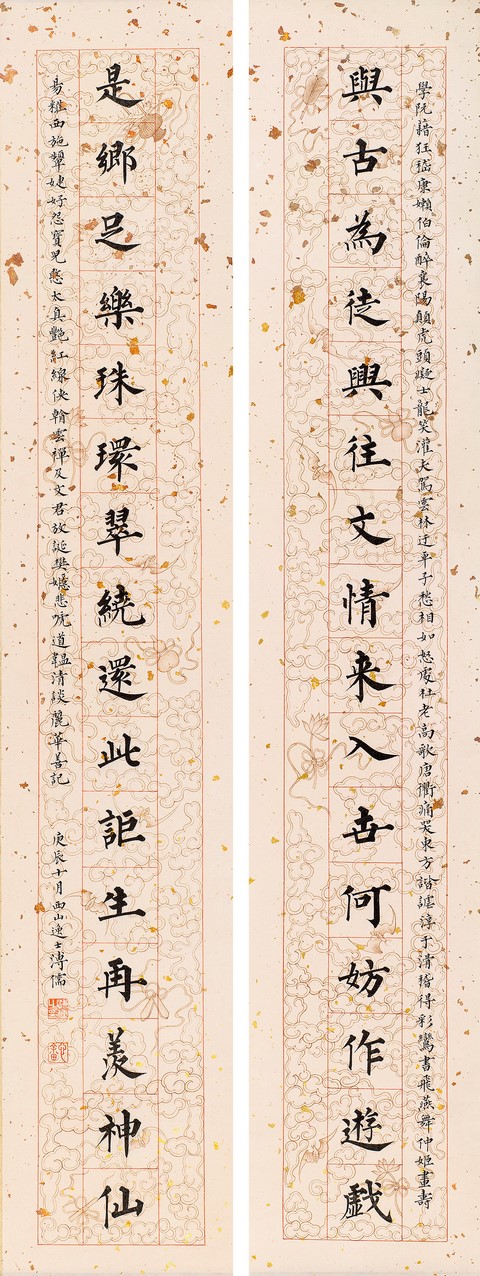 學阮籍狂嵇康嬾伯倫醉襄陽顛虎頭癡士龍笑灌夫罵雲林迂平子愁相如怒處杜老高歌唐衢痛哭東方諧謔淳于滑稽得彩鸞書飛燕舞仲姬畫壽
與古為徒興往文情来入世何妨作遊戲
是鄉足樂珠環翠繞還此詎生再羨神仙
昜粧西施顰婕妤怨寳兒憨太真艷紅線俠朝雲禪及文君放誕樊嫕悲吭道韞清談麗華善記
庚辰十月西山逸士溥儒